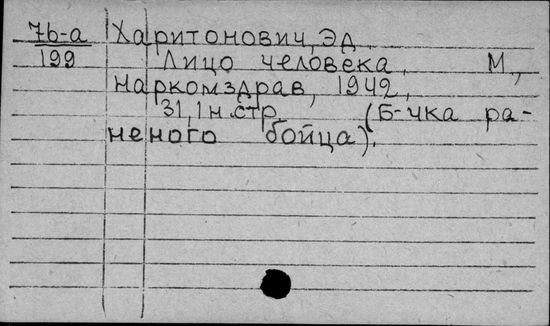 7б-а Харитонович, Эд.
199 Лицо человека. М.,
Наркомздрав, 1942,
31,1н.стр. (Б-чка ра-
неного бойца).